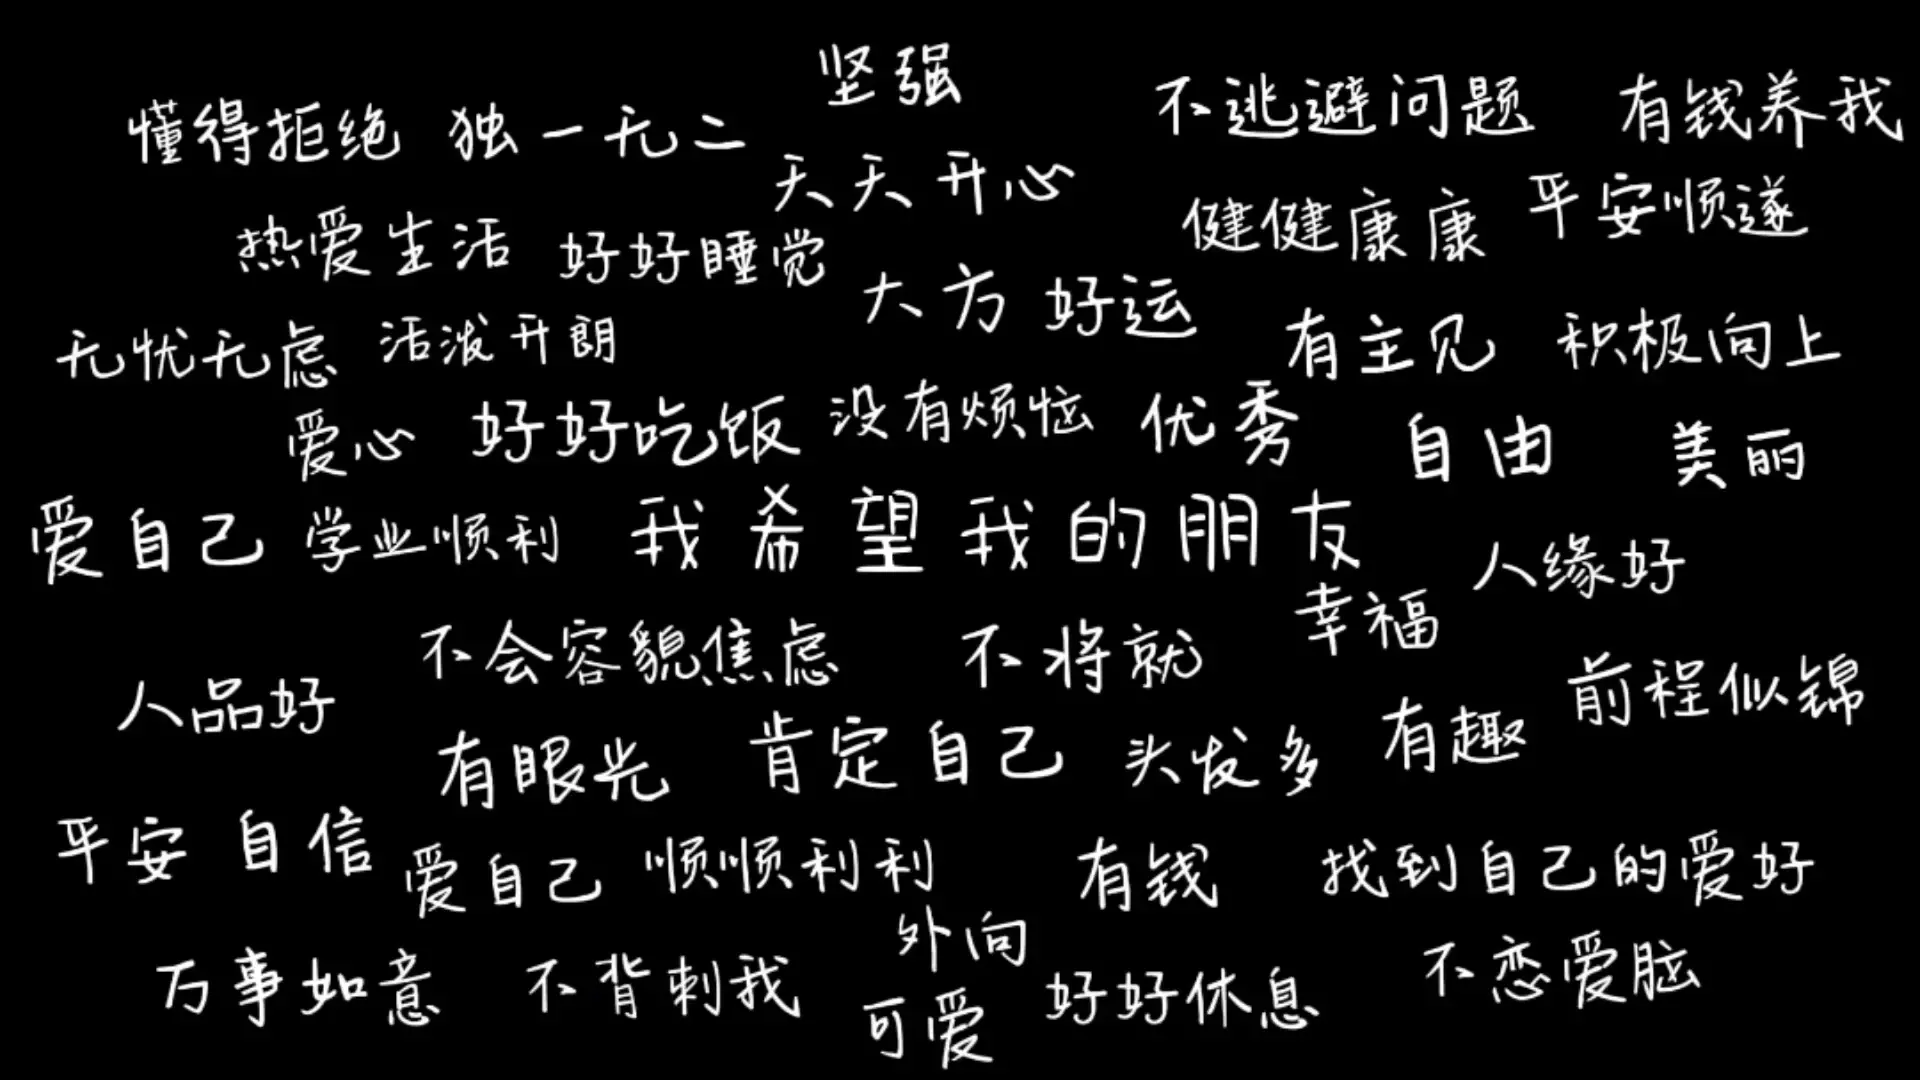 坚强
懂得拒绝 独一无二
不逃避问题 有钱养我
天天开心
热爱生活 好好睡觉
健健康康 平安顺遂
大方 好运
无忧无虑 活泼开朗
有主见 积极向上
爱心 好好吃饭 没有烦恼 优秀
自由 美丽
爱自己 学业顺利 我希望我的朋友
人缘好
幸福
不会容貌焦虑 不将就
人品好
前程似锦
有眼光 肯定自己 头发多 有趣
平安 自信
爱自己 顺顺利利 有钱 找到自己的爱好
外向
万事如意 不背刺我
好好休息 不恋爱脑
可爱